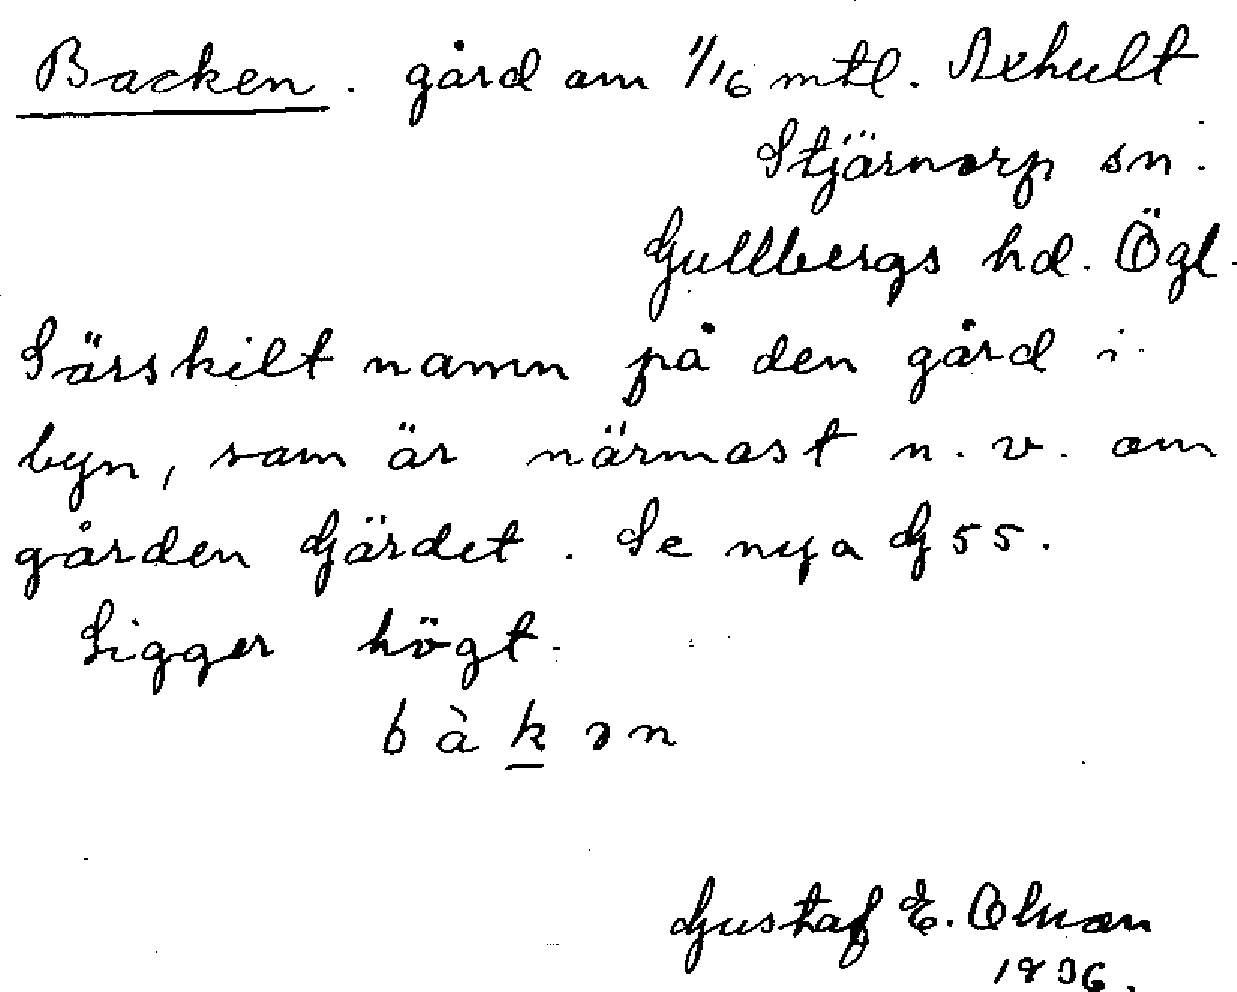 Backen. gård om 1/16 mtl. Rehult
Stjärnorp sn.
Gullbergs hd. Ögl.
Särskilt namn på den gård i
byn, som är närmast n. v. om
gården Gärdet. Se nya G 55.
Ligger högt.
b à k ə n
Gustaf E. Olsson
1936.